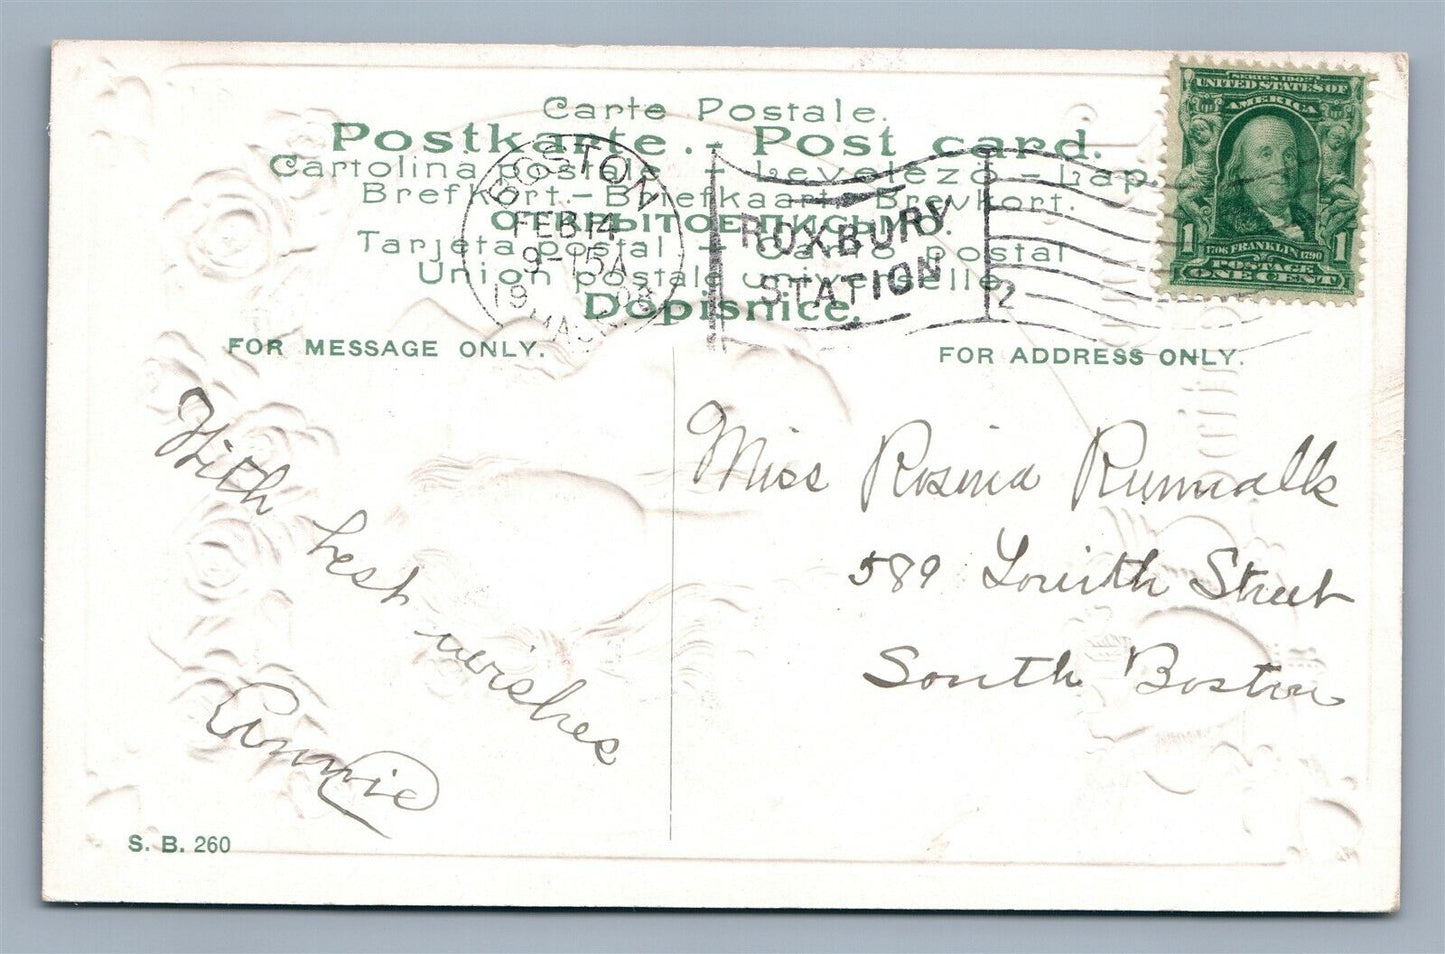 Carte Postale.
Postkarte. - Post card.
Cartolina postale - Levelező - Lap.
Brefkort - Briefkaart - Brevkort.
ОТКРЫТОЕ ПИСЬМО.
Tarjeta postal - Carto postal
Union postale universelle.
Dopisnice.
BOSTON
FEB 14
9-15A
1908
MASS.
ROXBURY
STATION
2
SERIES 1902
UNITED STATES OF
AMERICA
1 1706 FRANKLIN 1790 1
POSTAGE
ONE CENT
FOR MESSAGE ONLY.
FOR ADDRESS ONLY.
With best wishes
Annie
Miss Rosina
589 Street
South Boston
S. B. 260